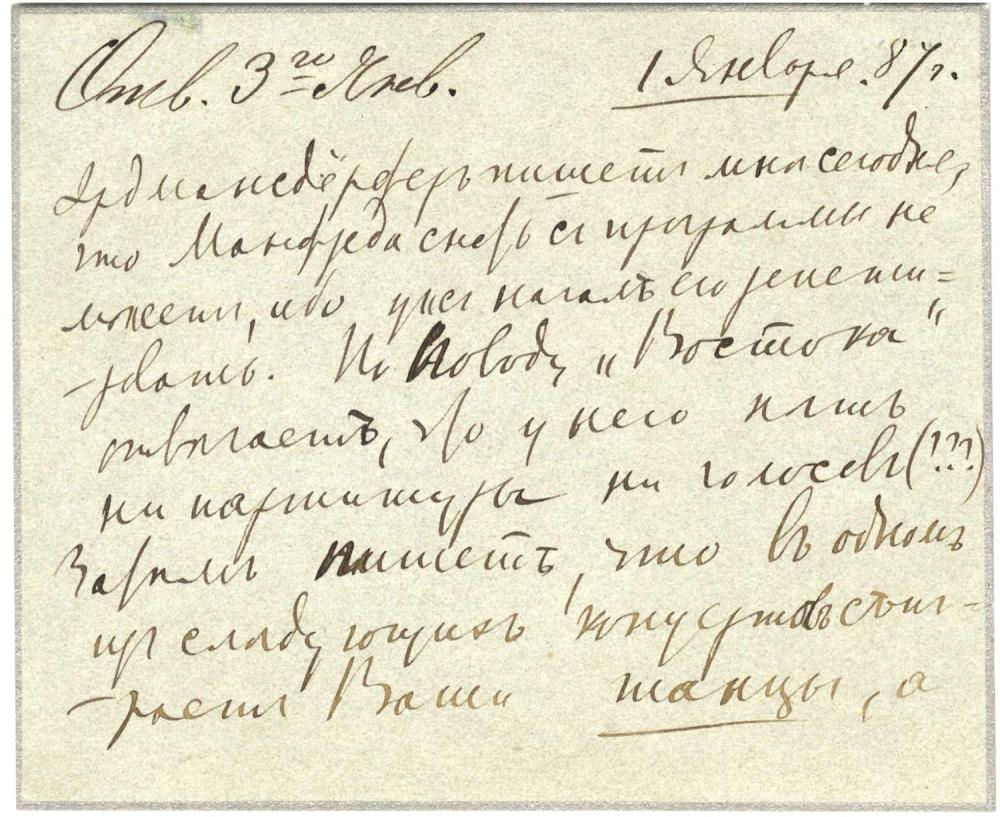 Отв. 3го Янв. 1 Января. 87 г.
Эрдмансдёрферъ пишетъ мнѣ сегодня,
что Манфреда снять съ программы не
можетъ, ибо уже началъ его репети-
-ровать. По поводу „Востока“
отвѣчаетъ, что у него нѣтъ
ни партитуры ни голосовъ (!??)
Затѣмъ пишетъ, что въ одномъ
изъ слѣдующихъ концертовъ сыг-
-раетъ Ваши танцы, а